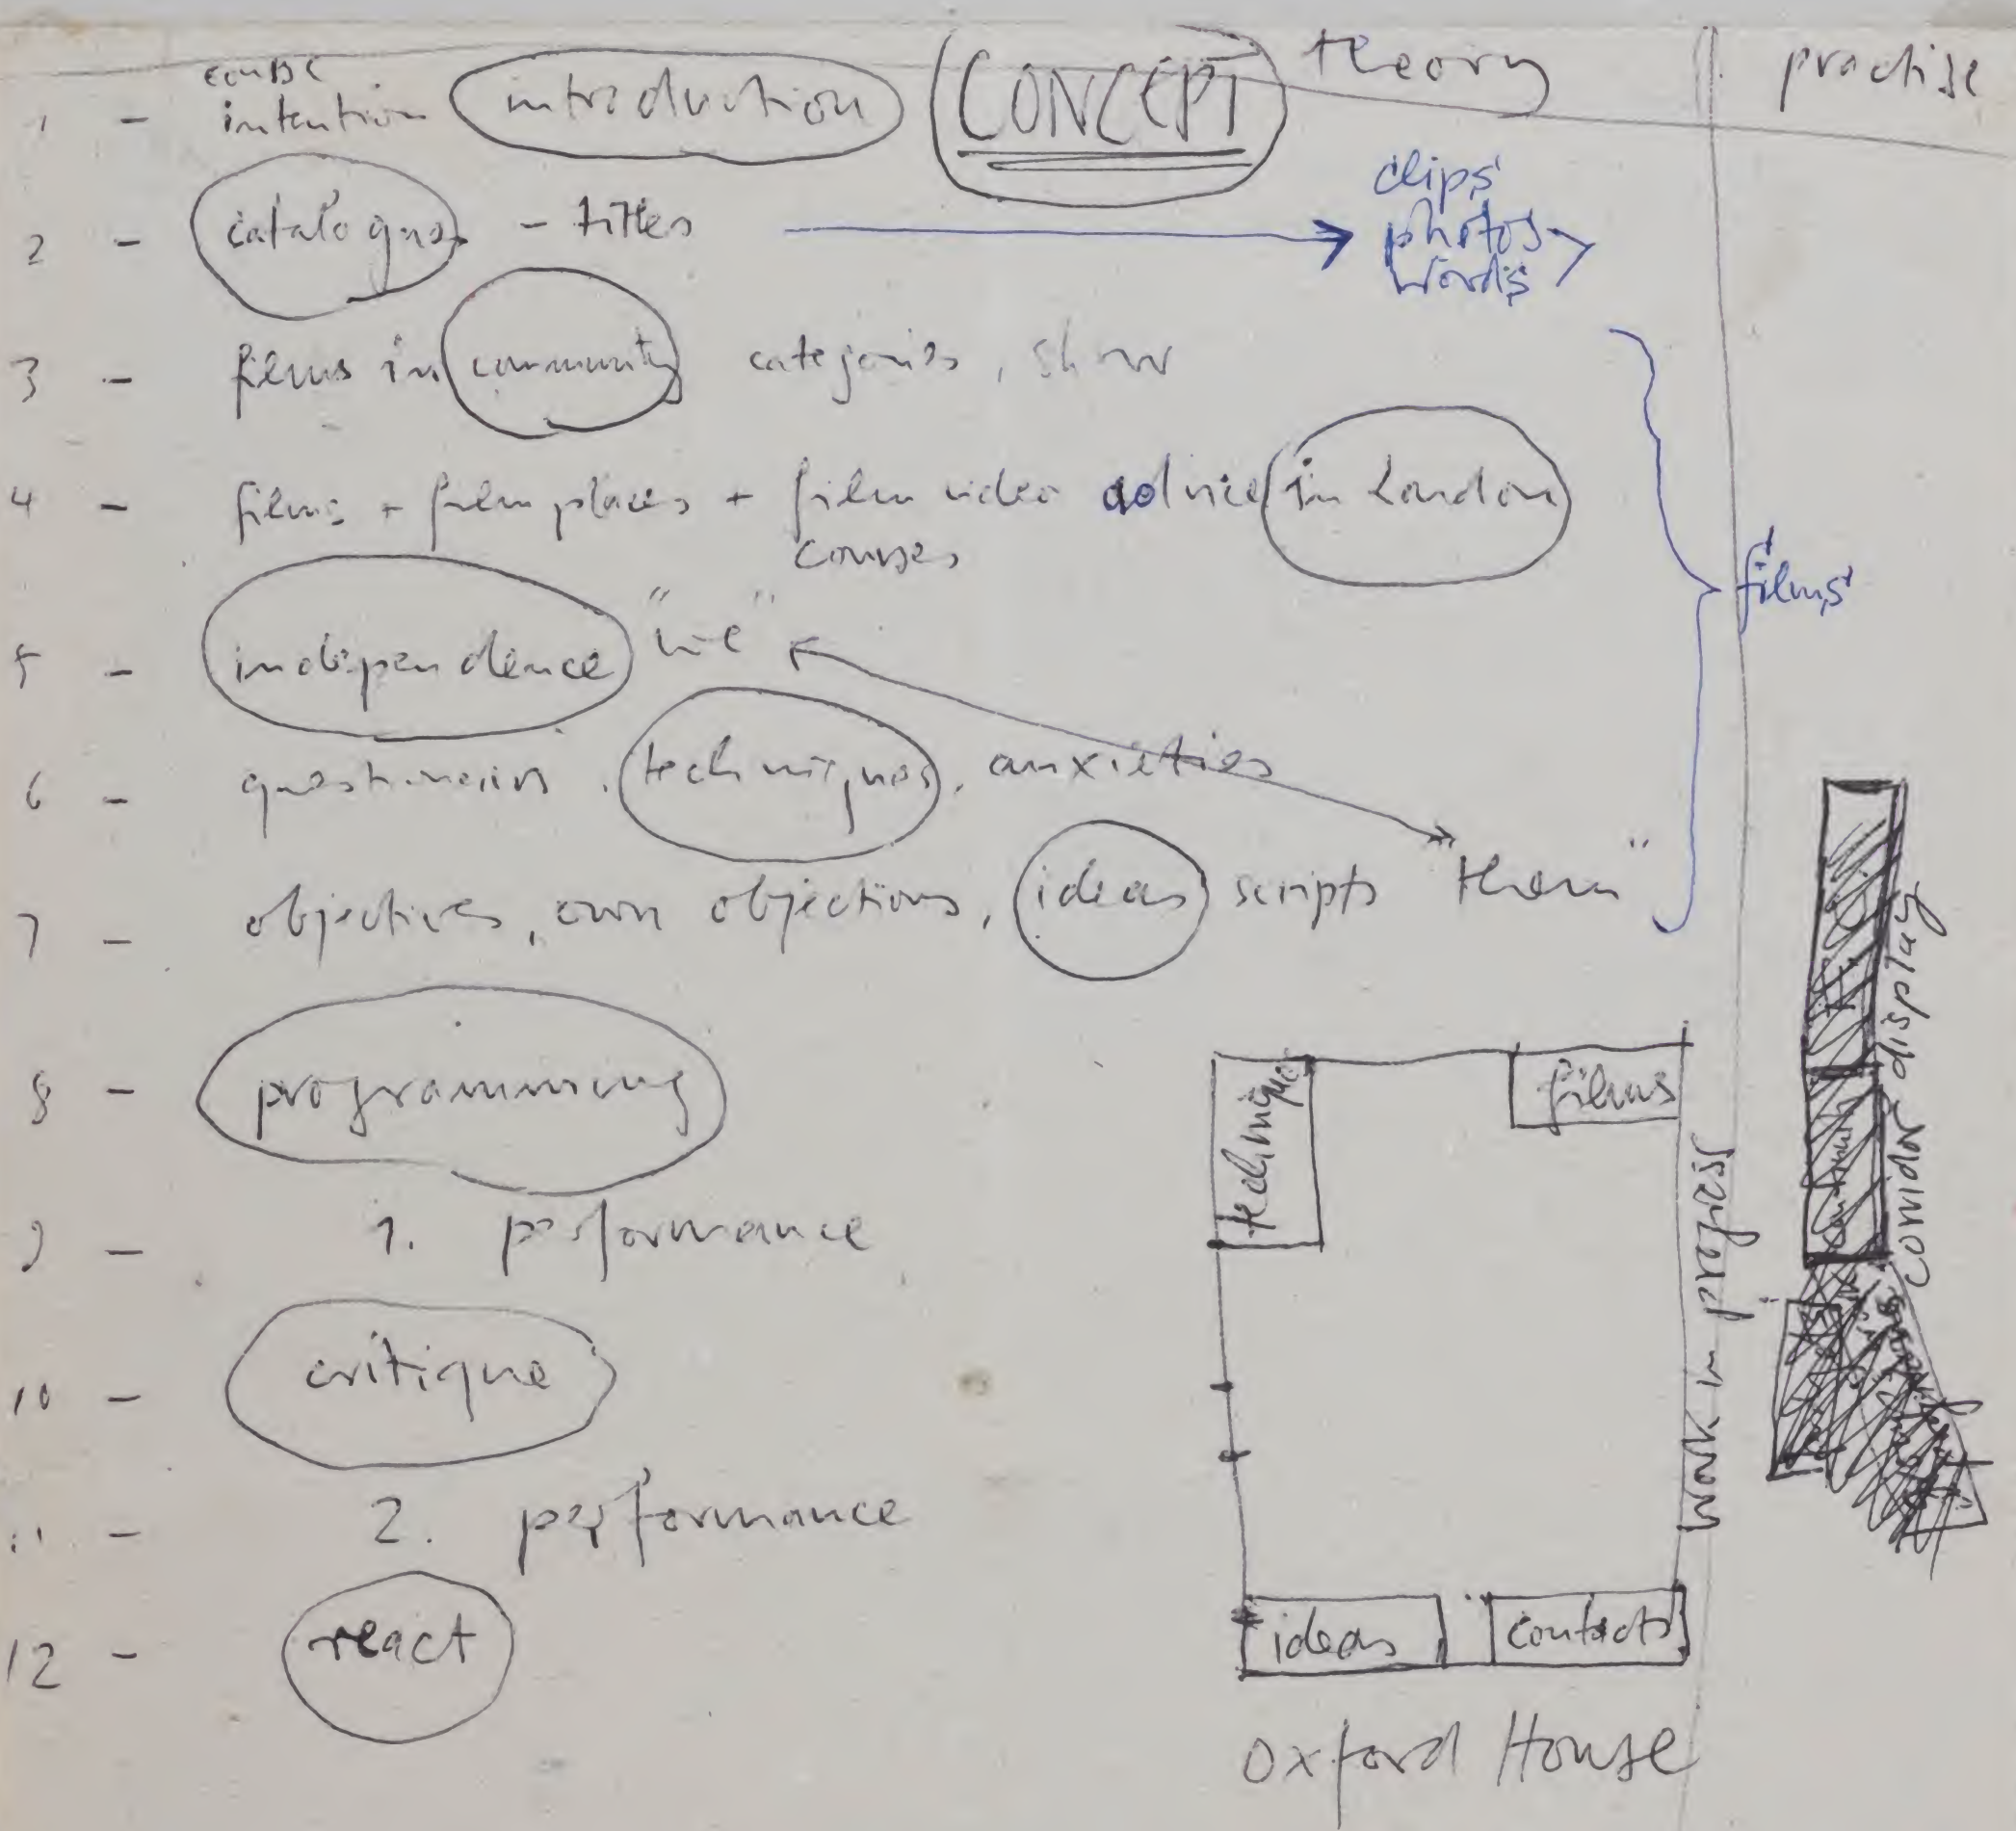 theory practise
course
1 - intention introduction CONCEPT
2 - catalogues - titles
clips
photos
words
3 - films in community categories, show
4 - films + film places + film video advice in London
courses
films
5 - independence "we"
6 - techniques, anxieties
7 - objectives, own objections, ideas scripts them"
8 - programming
9 - 1. performance
10 - critique
11 - 2. performance
12 - react
techniques
films
work in progress
corridor display
ideas
contacts
Oxford House